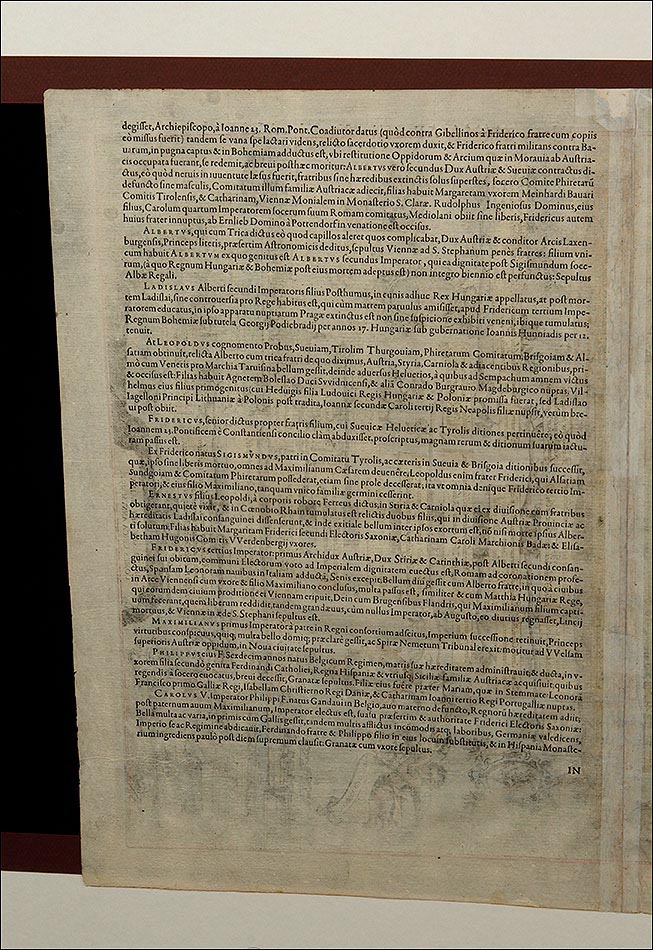 degisset, Archiepiscopo, à Ioanne 23. Rom. Pont. Coadiutor datus (quòd contra Gibellinos à Friderico fratre cum copiis
eò missus fuerit) tandem se vana spe lactari videns, relicto sacerdotio vxorem duxit, & Friderico fratri militans contra Ba-
uarum, in pugna captus & in Bohemiam adductus est, vbi restitutione Oppidorum & Arcium quæ in Morauia ab Austria-
cis occupata fuerant, se redemit, ac breui posthæc moritur: ALBERTVS vero secundus Dux Austriæ & Sueuiæ contractus di-
ctus, eò quòd neruis in iuuentute læsus fuerit, fratribus sine hæredibus extinctis solus superstes, socero Comite Phiretarū
defuncto sine masculis, Comitatum illum familiæ Austriacæ adiecit, filias habuit Margaretam vxorem Meinhardi Bauari
Comitis Tirolensis, & Catharinam, Viennæ Monialem in Monasterio S. Claræ. Rudolphus Ingeniosus Dominus, eius
filius, Carolum quartum Imperatorem socerum suum Romam comitatus, Mediolani obiit sine liberis, Fridericus autem
huius frater innuptus, ab Ernlieb Domino à Pottendorf in venatione est occisus.
ALBERTVS, qui cum Trica dictus eò quod capillos aleret quos complicabat, Dux Austriæ & conditor Arcis Laxen-
burgensis, Princeps literis, præsertim Astronomicis deditus, sepultus Viennæ ad S. Stephanum penès fratres: filium vni-
cum habuit ALBERTVM ex quo genitus est ALBERTVS secundus Imperator, qui ea dignitate post Sigismundum soce-
rum, (à quo Regnum Hungariæ & Bohemiæ post eius mortem adeptus est) non integro biennio est perfunctus: Sepultus
Albæ Regali.
LADISLAVS Alberti secundi Imperatoris filius Posthumus, in cunis adhuc Rex Hungariæ appellatus, at post mor-
tem Ladislai, sine controuersia pro Rege habitus est, qui cùm martem paruulus amisisset, apud Fridericum tertium Impe-
ratorem educatus, in ipso apparatu nuptiarum Pragæ extinctus est non sine suspicione exhibiti veneni, ibique tumulatus;
Regnum Bohemiæ sub tutela Georgij Podicbradij per annos 17. Hungariæ sub gubernatione Ioannis Hunniadis per 12.
tenuit.
At LEOPOLDVS cognomento Probus, Sueuiam, Tirolim Thurgouiam, Phiretarum Comitatum, Brisgoiam & Al-
satiam obtinuit, relicta Alberto cum trica fratri de quo diximus, Austria, Styria, Carniola & adiacentibus Regionibus, pri-
mò cum Venetis pro Marchia Taruisina bellum gessit, deinde aduersus Heluetios, à quibus ad Sempachum amnem victus
& occisus est: Filias habuit Agnetem Boleslao Duci Svvidnicensi, & aliā Conrado Burgrauio Magdeburgico nuptas. Vil-
helmus eius filius primogenitus (cui Heduigis filia Ludouici Regis Hungariæ & Poloniæ promissa fuerat, sed Ladislao
Iagelloni Principi Lithuaniæ à Polonis post tradita, Ioannæ secundæ Caroli tertij Regis Neapolis filiæ nupsit, verùm bre-
ui post obiit.
FRIDERICVS, senior dictus propter fratris filium, cui Sueuicæ Helueticæ ac Tyrolis ditiones pertinuêre, eò quòd
Ioannem 23. Pontificem è Constantiensi concilio clàm abduxisset, proscriptus, magnam rerum & ditionum suarum iactu-
ram passus est.
Ex Friderico natus SIGISMVNDVS, patri in Comitatu Tyrolis, ac cæteris in Sueuia & Brisgoia ditionibus successit,
quæ, ipso sine liberis mortuo, omnes ad Maximilianum Cæsarem deuenêre: Leopoldus enim frater Friderici, qui Alsatiam
Sundgoiam & Comitatum Phiretarum possederat, etiam sine prole decesserat; ita vt omnia denique Friderico tertio Im-
peratori, & eius filio Maximiliano, tanquam vnico familiæ germini cesserint.
ERNESTVS filius Leopoldi, à corporis robore Ferreus dictus, in Styria & Carniola quæ ei ex diuisione cum fratribus
obtigerant, quietè vixit, & in Cœnobio Rhain tumulatus est relictis duobus filiis, qui in diuisione Austriæ Prouinciæ ac
hæreditatis Ladislai consanguinei dissenserunt, & inde exitiale bellum inter ipsos exortum est, nō nisi morte ipsius Alber-
ti solutum. Filias habuit Margaritam Friderici secundi Electoris Saxoniæ, Catharinam Caroli Marchionis Badæi & Elisa-
betham Hugonis Comitis VVerdenbergij vxores.
FRIDERICVS tertius Imperator: primus Archidux Austriæ, Dux Stiriæ & Carinthiæ, post Alberti secundi consan-
guinei sui obitum, communi Electorum voto ad Imperialem dignitatem euectus est, Romam ad coronationem profe-
ctus, Sponsam Leonoram nauibus in Italiam adductā, Senis excepit, Bellum diu gessit cum Alberto fratre, in quo à ciuibus
in Arce Viennensi cum vxore & filio Maximiliano conclusus, multa passus est, similiter & cum Matthia Hungariæ Rege,
qui eorumdem ciuium proditione ei Viennam eripuit. Dein cum Brugensibus Flandris, qui Maximilianum filium capti-
uum fecerant, quem liberum reddidit, tandem grandæuus, cùm nullus Imperator, ab Augusto, eo diutius regnasset, Lincij
mortuus, & Viennæ in æde S. Stephani sepultus est.
MAXIMILIANVS primus Imperator à patre in Regni consortium adscitus, Imperium successione retinuit, Princeps
virtutibus conspicuus, quiq; multa bello domiq; præclarè gessit, ac Spiræ Nemetum Tribunal erexit: moritur ad VVelsam
superioris Austriæ oppidum, in Noua ciuitate sepultus.
PHILIPPVS eius F. Sexdecim annos natus Belgicum Regimen, matris suæ hæreditatem administrauit, & ducta, in v-
xorem filia secundò genita Ferdinandi Catholici, Regna Hispaniæ & vtriusq; Siciliæ familiæ Austriacæ acquisiuit, quibus
regendis à socero euocatus, breui decessit, Granatæ sepultus. Filiæ eius fuêre præter Mariam, quæ in Stemmate Leonora
Francisco primo Galliæ Regi, Isabellam Christierno Regi Daniæ, & Catharinam Ioanni tertio Regi Portugalliæ nuptas.
CAROLVS V. Imperator Philippi F. natus Gandaui in Belgio, auo materno defuncto, Regnorū hæreditatem adiit;
post paternum auum Maximilianum, Imperator electus est, suasu præsertim & authoritate Friderici Electoris Saxoniæ:
Bella multa ac varia, in primis cum Gallis gessit, tandem multis afflictus incomodis atq; laboribus, Germaniæ valedicens,
Imperio se ac Regimine abdicauit, Ferdinando fratre & Philippo filio in eius locum substitutis, & in Hispania Monaste-
rium ingrediens paulò post diem supremum clausit: Granatæ cum vxore sepultus.
IN